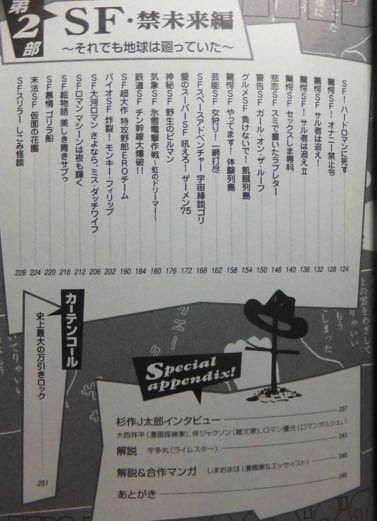 第2部
SF・禁未来編
～それでも地球は廻っていた～
SF！ハードロマンに死す 124
驚愕SF！オナニー禁止令 128
驚愕SF！サル者は追え！ 132
驚愕SF！サル者は追えⅡ 136
驚愕SF セックスしま専科 140
悲恋SF スミで書いたラブレター 146
警告SF ガール・オン・ザ・ルーフ 150
グルメSF 負けないで！飢餓列島 154
驚愕SF やってます！体験列島 158
芸能SF 女狩り！一網打尽 162
SFスペースアドベンチャー 宇宙縁談ゴリ 164
愛のスーパーSF 吼えろ！ザーメン75 168
神秘SF 野生のビルマン 176
気象SF 氷雪電撃作戦！～虹のドリーマー～ 180
鉄道SF チン幹線大爆破！！ 184
SF超大作 特攻野郎EROチーム 190
バイオSF 炸裂！モンキー・フィリップ 194
SF大河ロマン さよなら、ミス・ダッチワイフ 202
SFロマン マシーンは夜も輝く 206
SF怪物語 美しき青きサブゥ 212
SF慕情 ゴリラ船 216
末法SF 仮面の花園 220
SFスリラー しごみ怪談 224
228
カーテンコール
史上最大の万引きロック 251
Special appendix!
杉作J太郎インタビュー 237
大西祥平（漫画探検家）、伴ジャクソン（雑文家）、ロマン優光（ロマンポルシェ。）
解説 宇多丸（ライムスター） 243
解説&合作マンガ しまおまほ（漫画家&エッセイスト） 246
あとがき 248